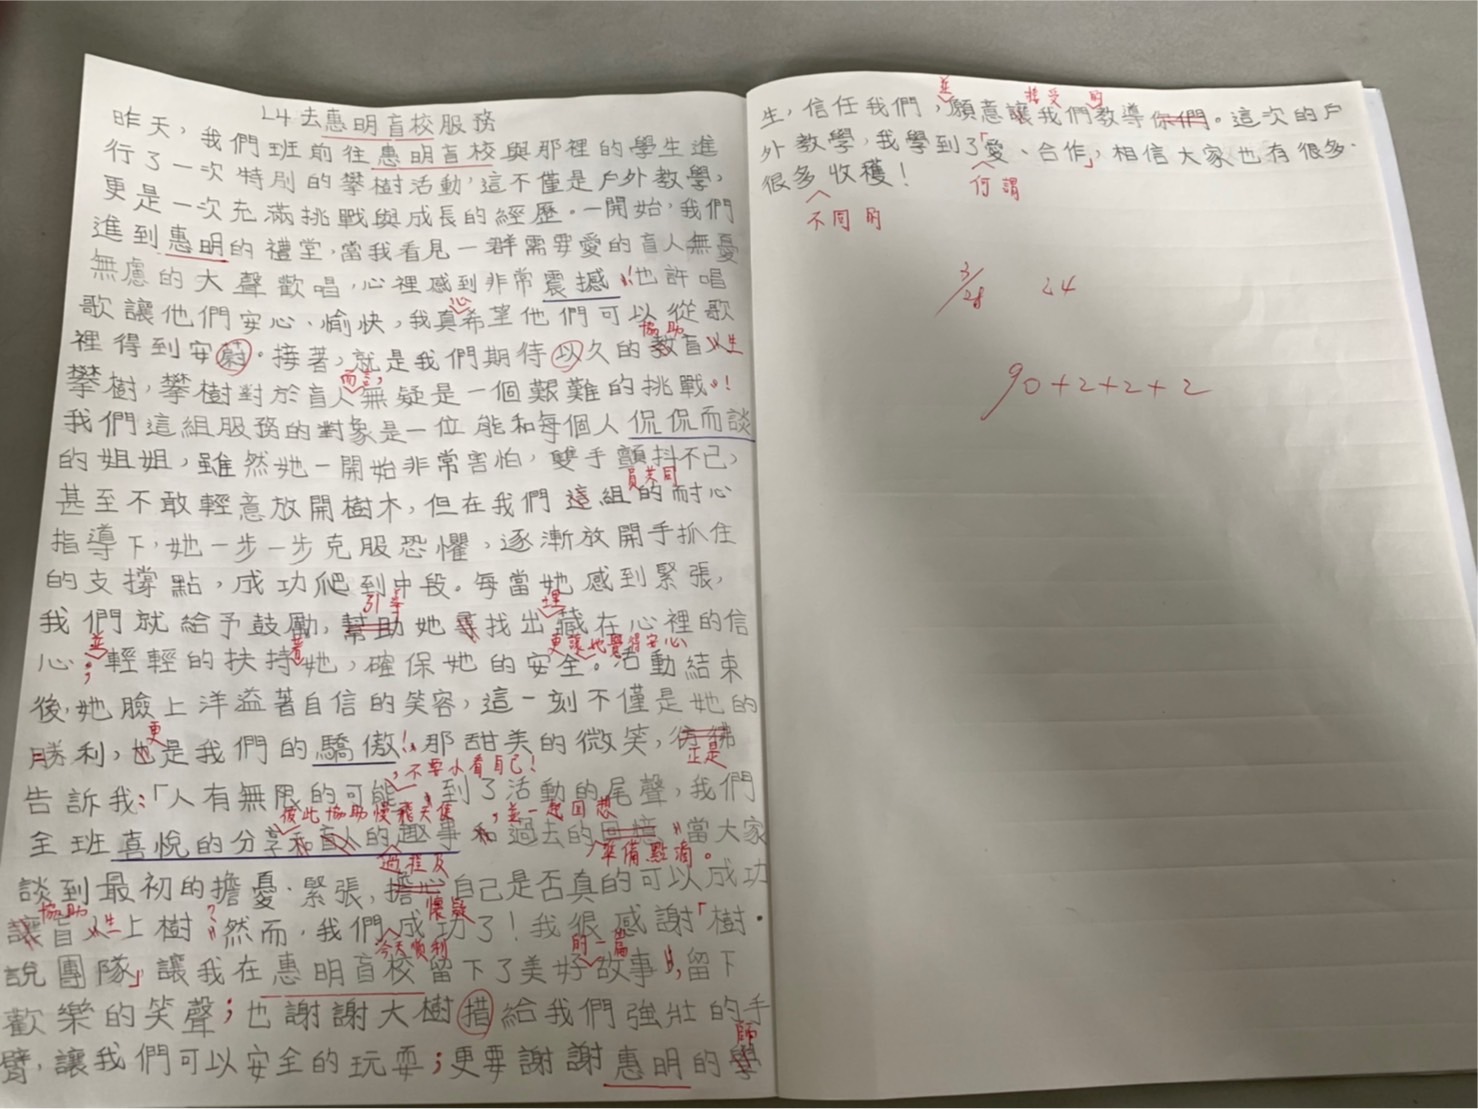 L4去惠明盲校服務
昨天,我們班前往惠明盲校與那裡的學生進
行了一次特別的攀樹活動,這不僅是戶外教學,
更是一次充滿挑戰與成長的經歷。一開始,我們
進到惠明的禮堂,當我看見一群需要愛的盲人無憂
無慮的大聲歡唱,心裡感到非常震撼!也許唱
歌讓他們安心、愉快,我真心希望他們可以從歌
裡得到安蔚。接著,就是我們期待以久的教盲人
協助 生
攀樹,攀樹對於盲人無疑是一個艱難的挑戰。!
而言,
我們這組服務的對象是一位能和每個人侃侃而談
的姐姐,雖然她一開始非常害怕,雙手顫抖不已,
甚至不敢輕意放開樹木,但在我們這組的耐心
員共同
指導下,她一步一步克服恐懼,逐漸放開手抓住
的支撐點,成功爬到中段。每當她感到緊張,
我們就給予鼓勵,幫助她尋找出藏在心裡的信
引導 埋
心;輕輕的扶持她,確保她的安全。活動結束
並 著 更讓她覺得安心
後,她臉上洋溢著自信的笑容,這一刻不僅是她的
勝利,也是我們的驕傲!那甜美的微笑,彷彿
更 正是
告訴我:「人有無限的可能」,到了活動的尾聲,我們
,不要小看自己!
全班喜悅的分享和盲人的趣事和過去的回憶。當大家
彼此協助慢飛天使 ,並一起回想
準備點滴。
談到最初的擔憂、緊張,擔心自己是否真的可以成功
過程及 懷疑
讓盲人上樹?然而,我們成功了!我很感謝「樹·
協助 生 今天順利
說團隊」讓我在惠明盲校留下了美好故事,留下
的一篇
歡樂的笑聲;也謝謝大樹措給我們強壯的手
臂,讓我們可以安全的玩耍;更要謝謝惠明的學
師
生,信任我們,願意讓我們教導你們。這次的戶
並 接受 的
外教學,我學到了「愛、合作」,相信大家也有很多·
何謂
很多收穫!
不同的
3/28 L4
90+2+2+2